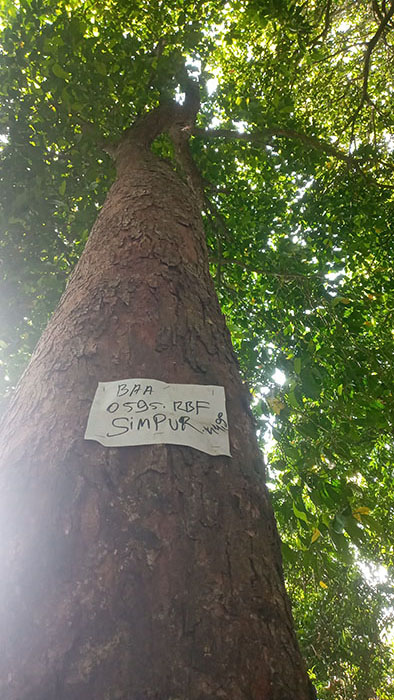 BAA
0595. RBF
SIMPUR